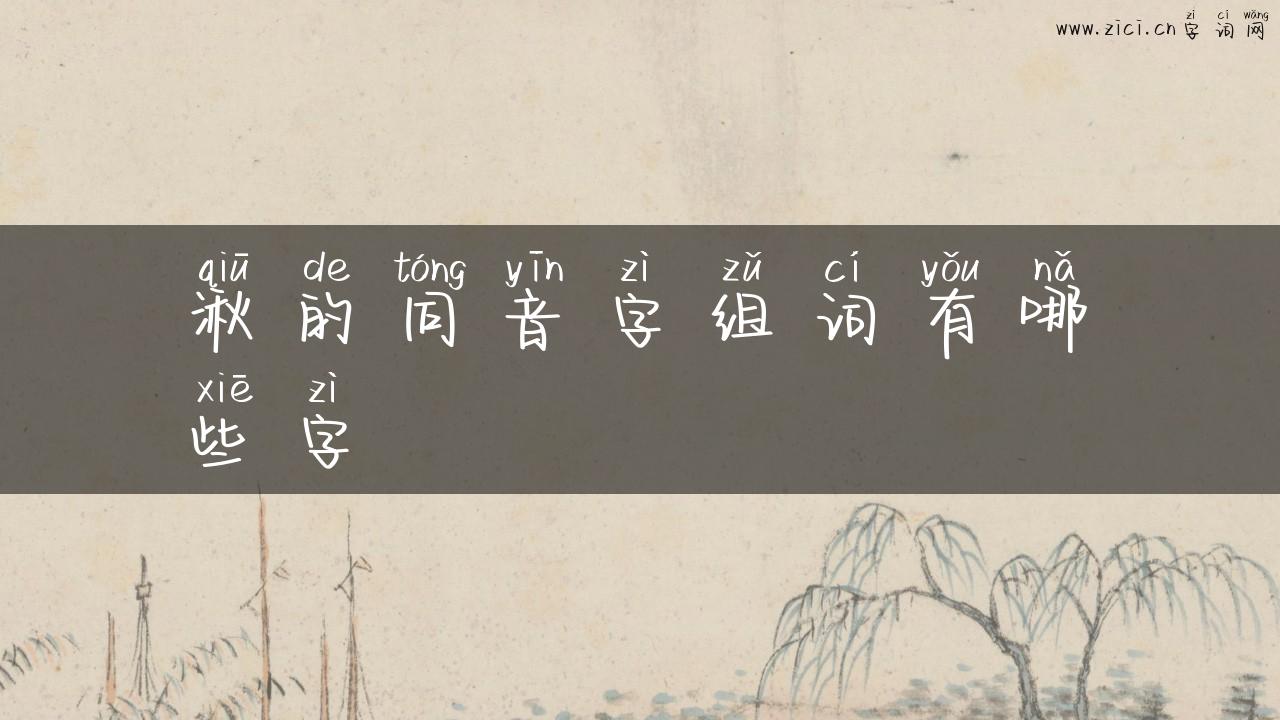 zì cí wǎng
www.zici.cn 字词网
qiū de tóng yīn zì zǔ cí yǒu nǎ
湫的同音字组词有哪
xiē zì
些字